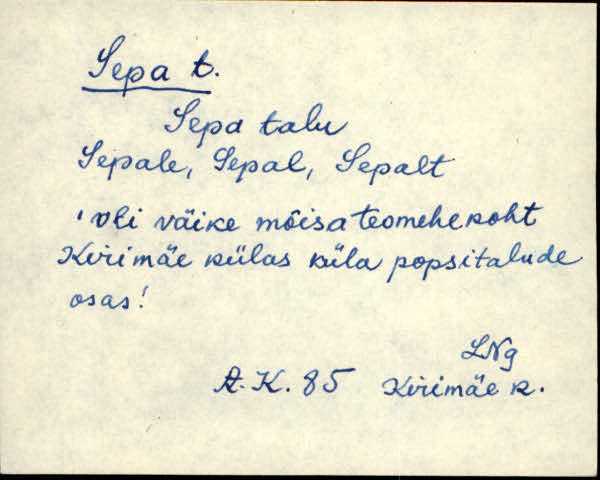 Sepa t.
Sepa talu
Sepale, Sepal, Sepalt
'oli väike mõisateomehekoht
Kirimäe külas küla popsitalude
osas!
LNg
A.K. 85 Kirimäe k.